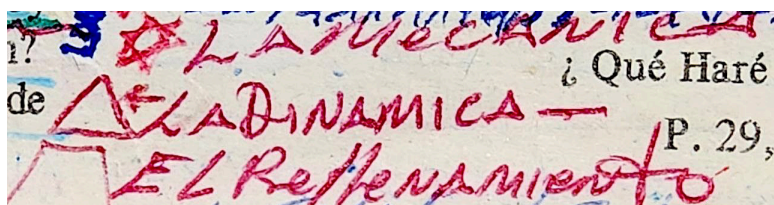 n?
LA MECANICA
¿ Qué Haré
de
LA DINAMICA —
P. 29,
EL RellenAMIENTO